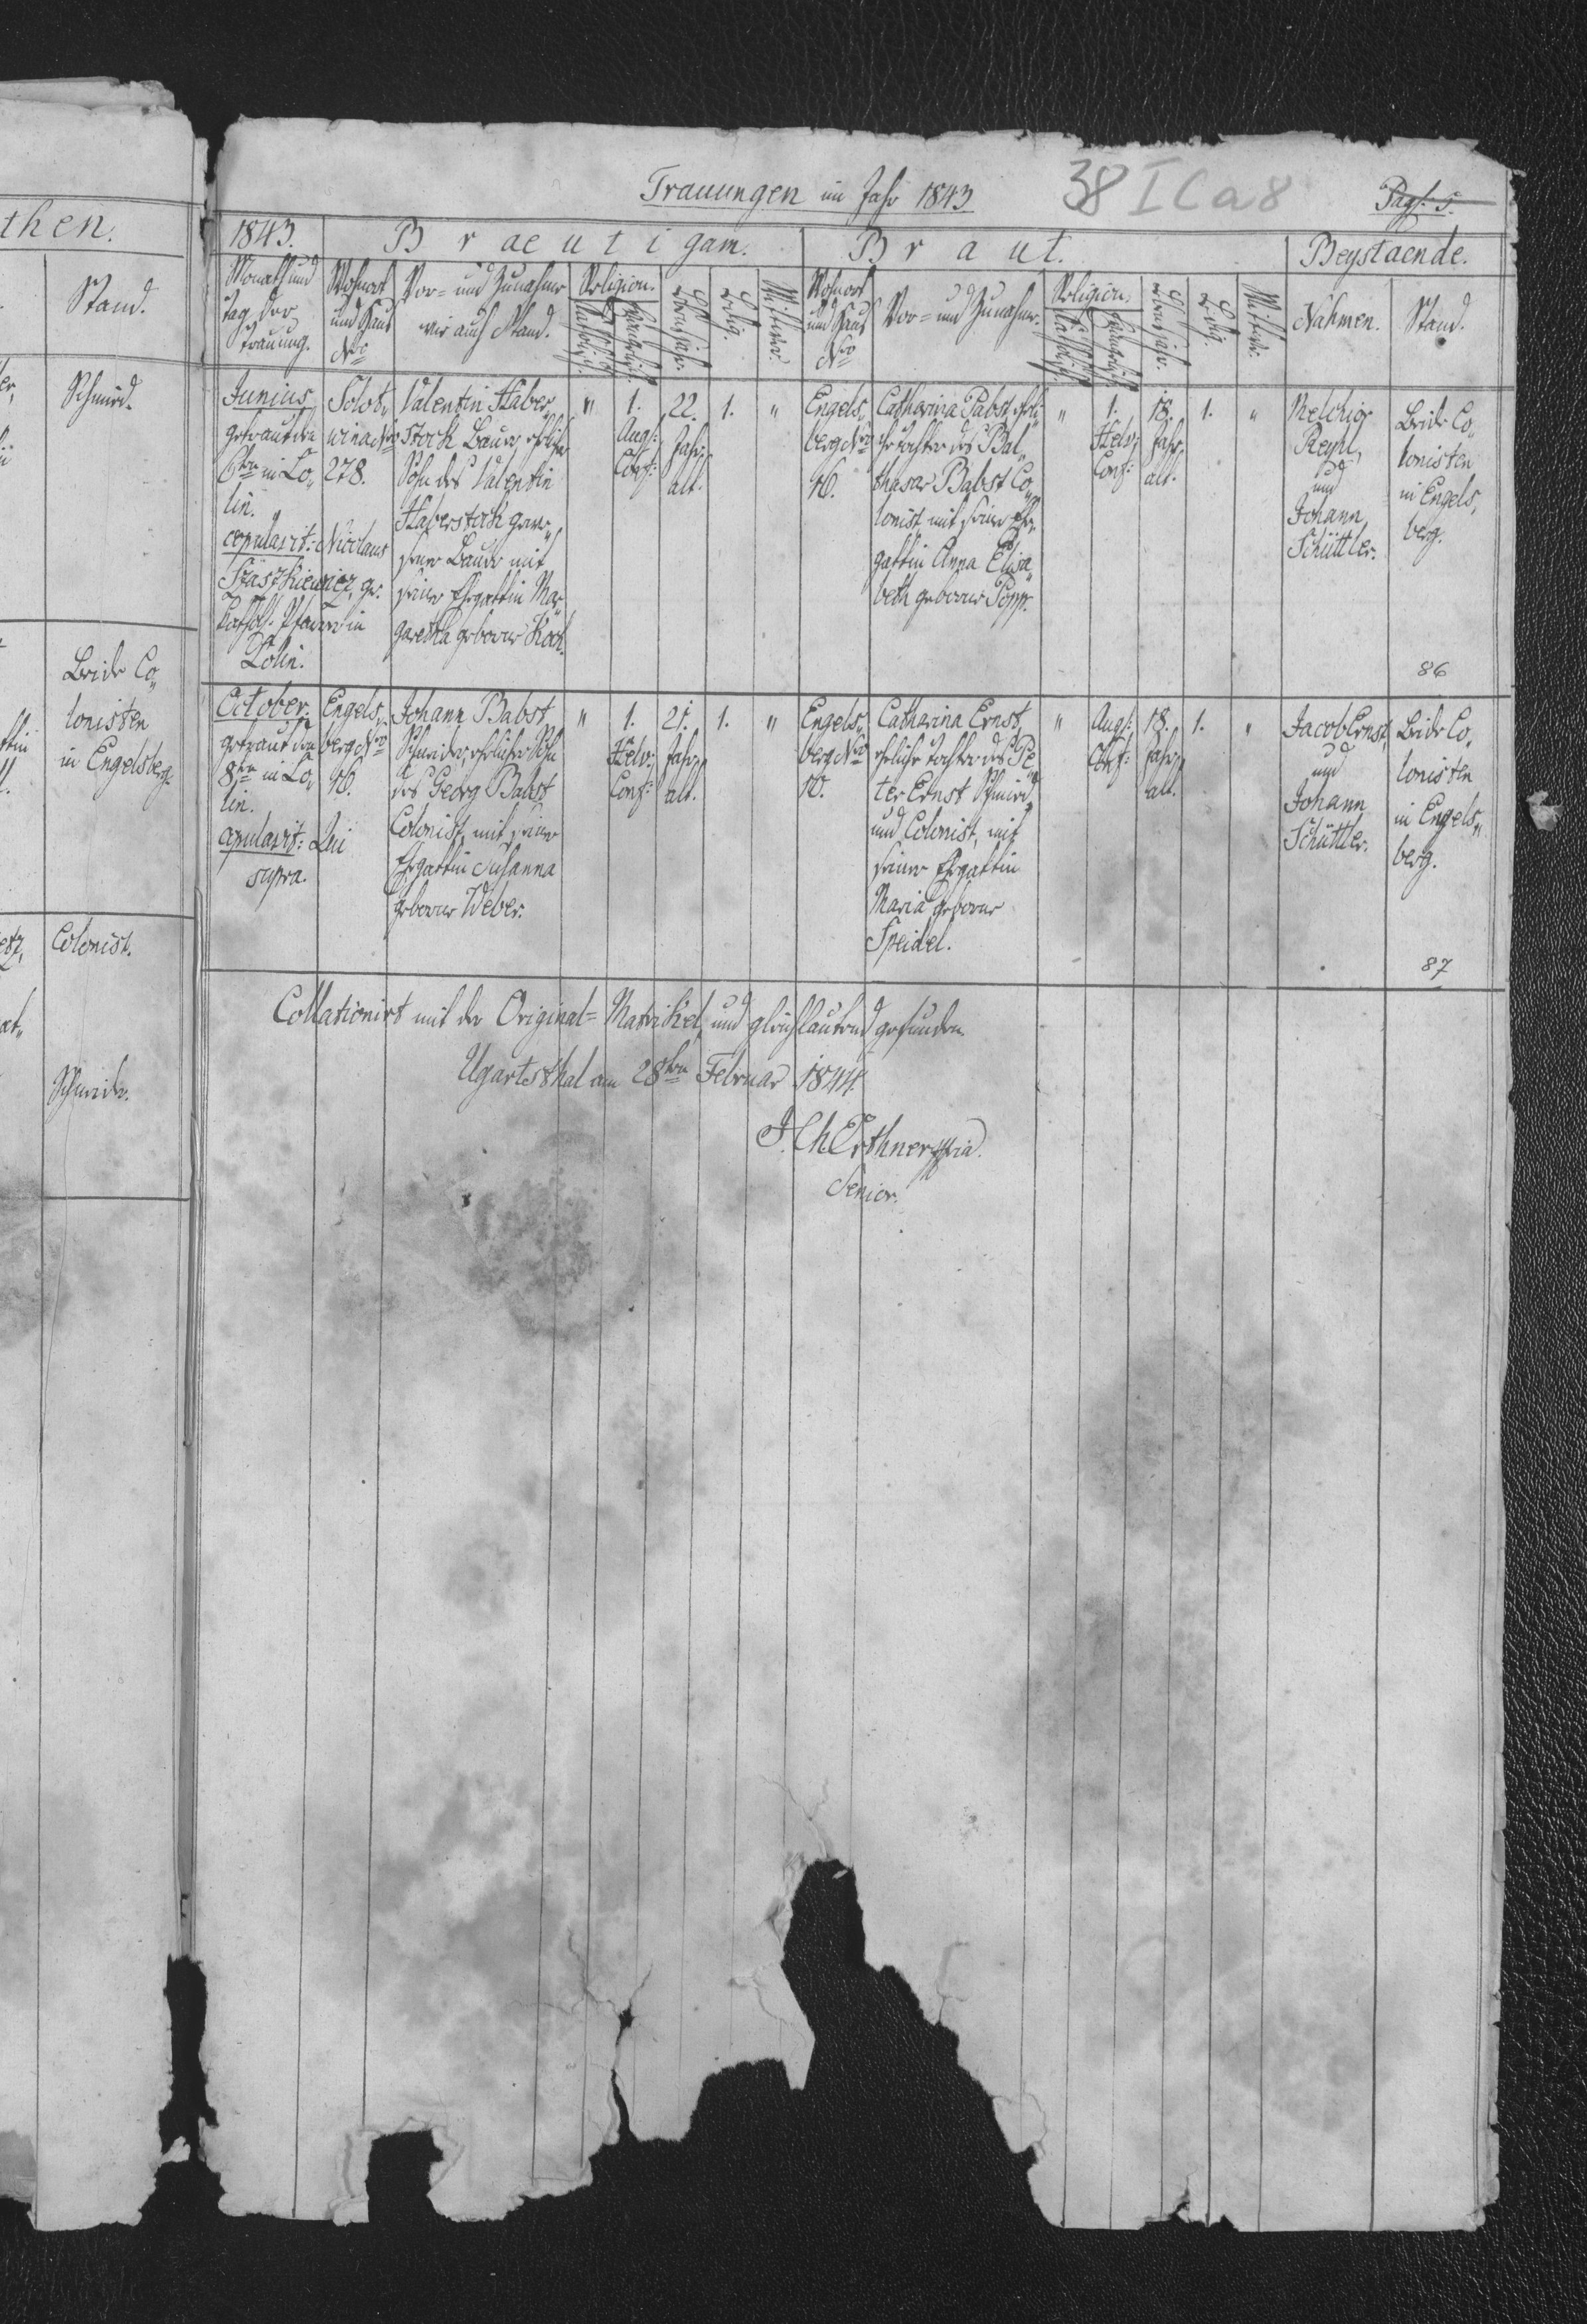 then.
Stand.
Schmied.
Beide Co„
lonisten
in Engelsberg.
Colonist.
Schneider.
Trauungen im Jahr 1843
38 I C a 8
Pag: 5.
1843.
Braeutigam.
Braut.
Beystaende.
Monath und
Tag der
Trauung.
Wohnort
und Haus
Nro
Vor- und Zunahme
wie auch Stand.
Religion.
Katholisch.
Evangelisch.
Lebensjahr.
Ledig.
Wittwer.
Wohnort
und Haus
Nro
Vor- und Zunahme.
Religion.
Katholisch.
Evangelisch.
Lebensjahr.
Ledig.
Wittwe.
Nahmen.
Stand.
Junius
getraut den
6ten in Lo„
lin.
copulavit: Nicolaus
gr.
Kathol: Pfarrer in
Lolin.
Solot„
wina Nro
278.
Valentin Haber„
stock Bauer ehelicher
Sohn des Valentin
Haberstock gewe„
sener Bauer mit
seiner Ehegattin Mar„
garetha geborne Koch.
"
1.
Augs:
Conf:
22.
Jahr
alt.
1.
"
Engels„
berg Nro
16.
Catharina Pabst, eheli„
che Tochter des Bal„
thasar Babst Co„
lonist mit seiner Ehe„
gattin Anna Elisa„
beth geborne Popp.
"
1.
Helv:
Conf:
18.
Jahr
alt.
1.
"
Melchior
und
Johann
Schüttler.
Beide Co„
lonisten
in Engels„
berg.
86
October.
getraut den
8ten in Lo„
lin.
copulavit: Qui
supra.
Engels„
berg Nro
16.
Johann Babst
Schneider, ehelicher Sohn
des Georg Babst
Colonist, mit seiner
Ehegattin Susanna
geborne Weber.
"
1.
Helv:
Conf:
21.
Jahr
alt.
1.
"
Engels„
berg Nro
10.
Catharina Ernst,
eheliche Tochter des Pe„
ter Ernst Schmied
und Colonist, mit
seiner Ehegattin
Maria geborne
Speidel.
"
Augs:
Conf:
18.
Jahr
alt.
1.
"
Jacob Ernst,
und
Johann
Schüttler.
Beide Co„
lonisten
in Engels„
berg.
87
Collationirt mit der Original-Matrikel, und gleichlautend gefunden.
Ugartsthal am 28ten Februar 1844.
J. Ch Erthner mpria.
Senior.